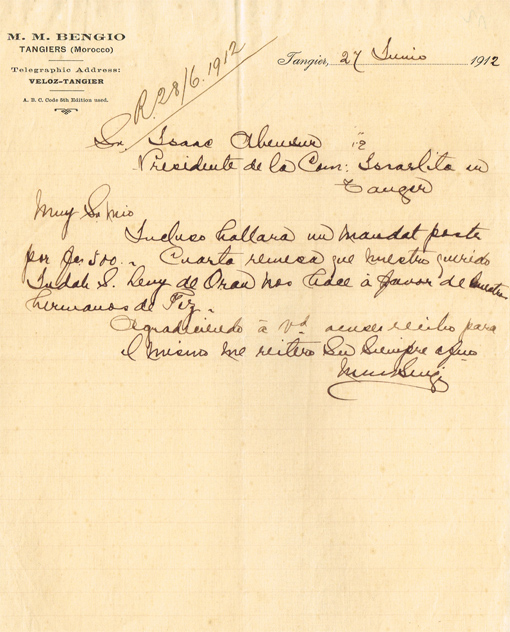 M. M. BENGIO
TANGIERS (Morocco)
Telegraphic Address:
VELOZ-TANGIER
A. B. C. Code 5th Edition used.
R. 28/6. 1912
Tangier, 27 Junio 1912
Sr. Isaac Abensur
Presidente de la Com: Israelita en
Tanger
Muy Sr. Mio
Incluso hallara un mandat poste
por Fcs. 500. Cuarta remesa que nuestro querido
Judah S. Levy de Oran nos hace à favor de nuestros
hermanos de Fez.
Agradeciendo à Vd acuse recibo para
el mismo me reitero Su Siempre